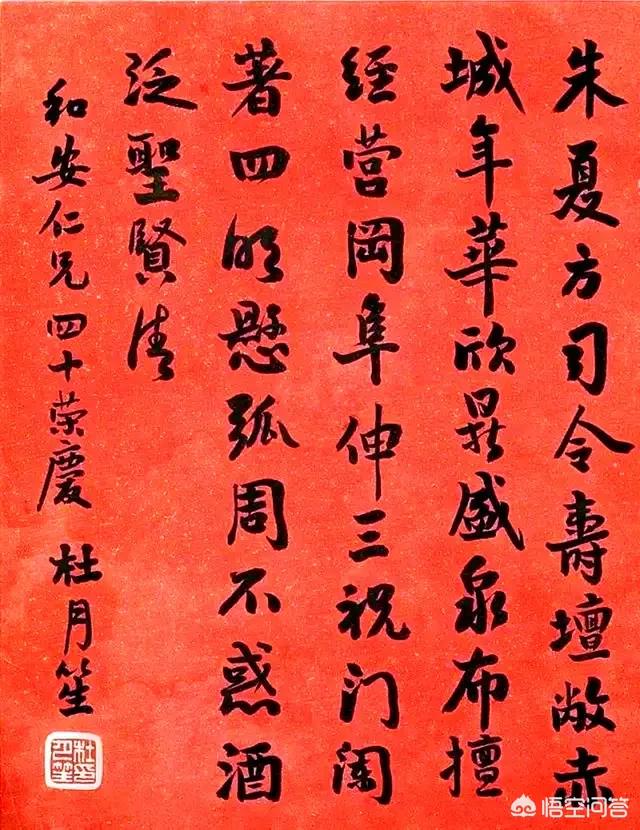 朱夏方司令壽壇敞赤
城年華欣鼎盛泉布擅
經营岡阜伸三祝门闌
著四明懸弧周不惑酒
泛聖賢清
和安仁兄四十荣慶 杜月笙
杜印月笙
悟空问答